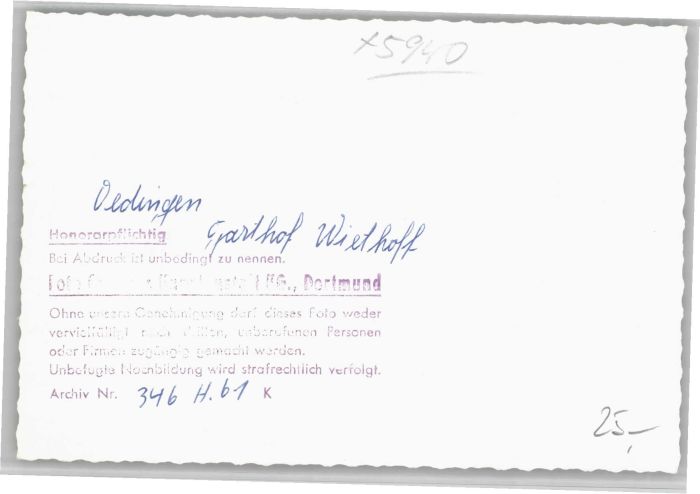 x5940
Oedingen
Gasthof Wiethoff
Honorarpflichtig
Bei Abdruck ist unbedingt zu nennen.
Foto KG., Dortmund
Ohne unsere Genehmigung darf dieses Foto weder
vervielfältigt noch dritten, unberufenen Personen
oder Firmen zugängig gemacht werden.
Unbefugte Nachbildung wird strafrechtlich verfolgt.
Archiv Nr. 346 H. 61 K
25,-